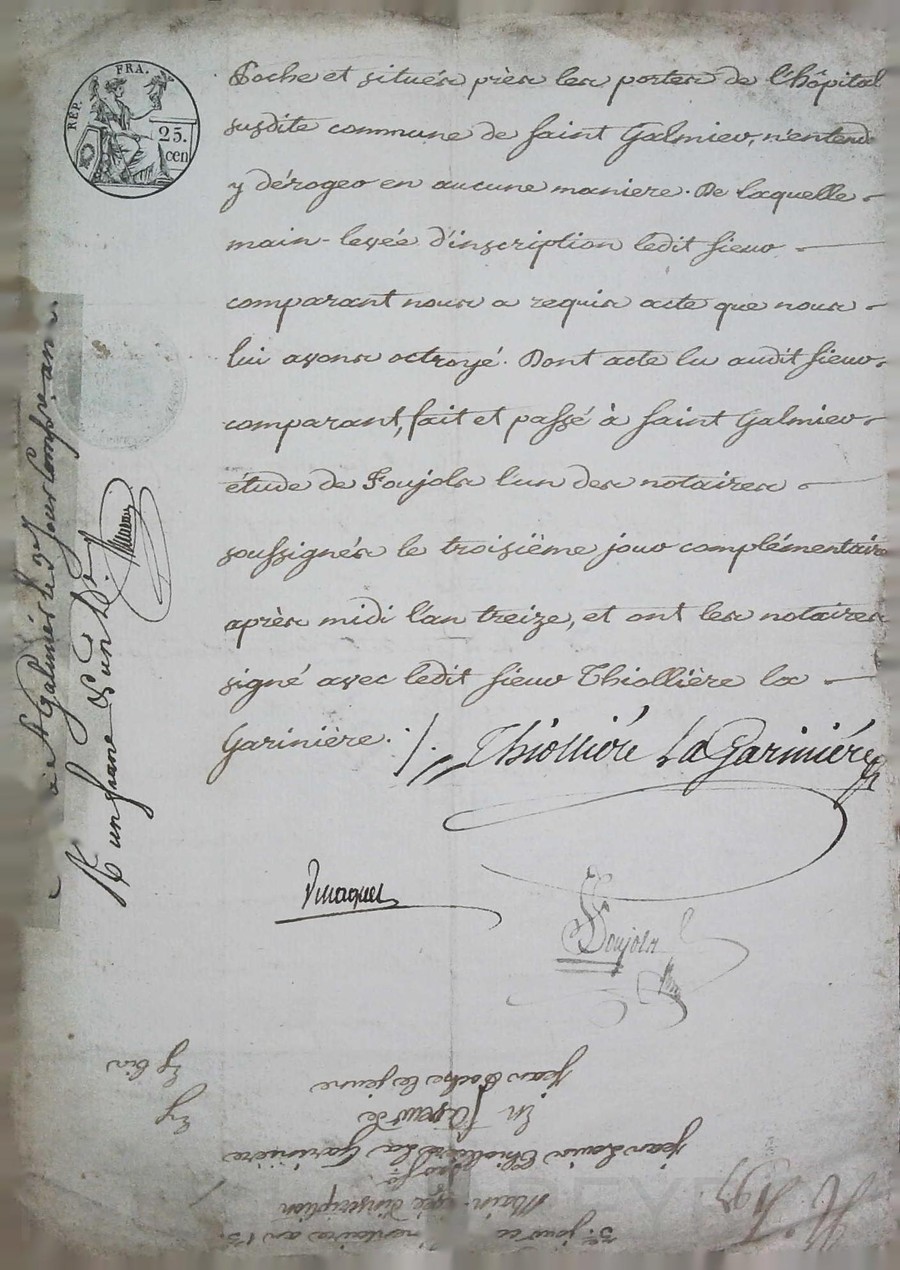 REP. FRA.
25.
cen
Poche et située près les portes de l'hôpital
susdite commune de Saint Galmier, n'entend
y déroger en aucune maniere. De laquelle
main-levée d'inscription ledit sieur
comparant nous a requis acte que nous
lui avons octroyé. Dont acte lu audit sieur
comparant, fait et passé à Saint Galmier
étude de Foujols l'un des notaires
soussignés le troisième jour complémentaire
après midi l'an treize, et ont les notaires
signé avec ledit sieur Thiollière la
Garinière.
Thiollière La Garinière
Foujols
à St Galmier le 3e jour
R un franc
3e jour complémentaire an 13.
Main-levée d'inscription
par
jean Louis Thiollière La Garinière
En faveur de
jean Poche le jeune